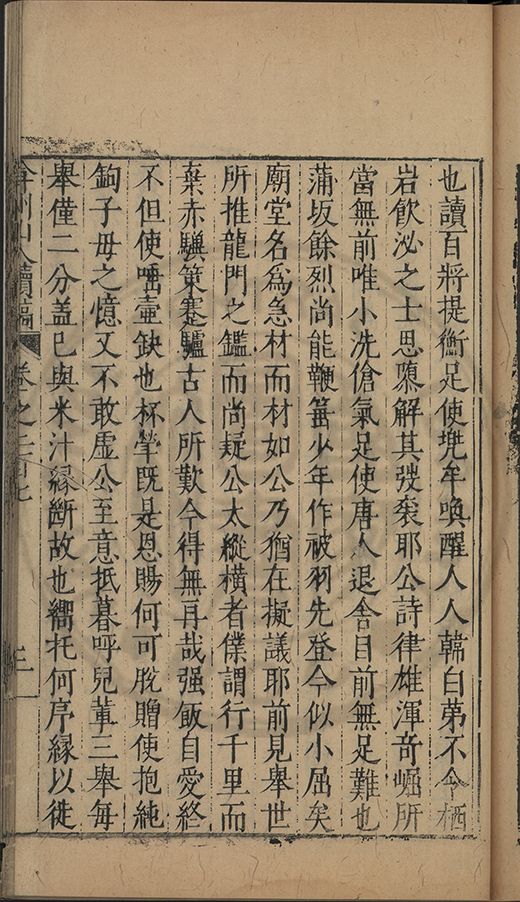 也讀百將提衡足使兠牟喚醒人人韓白苐不令栖
岩飲泌之士思隳解其弢袠耶公詩律雄渾奇崛所
當無前唯小洗傖氣足使唐人退舍目前無足難也
蒲坂餘烈尚能鞭箠少年作被羽先登今似小屈矣
廟堂名爲急材而材如公乃猶在擬議耶前見舉世
所推龍門之鑑而尚疑公太縱橫者僕謂行千里而
棄赤驥策蹇驢古人所歎今得無再哉强飯自愛終
不但使唾壺缺也杯斝既是恩賜何可脫贈使抱純
鉤子毋之憶又不敢虛公至意抵暮呼兒輩三舉每
舉僅二分盖已與米汁緣斷故也嚮托何序縁以徙
弇州山人續稿 卷之二百七 三